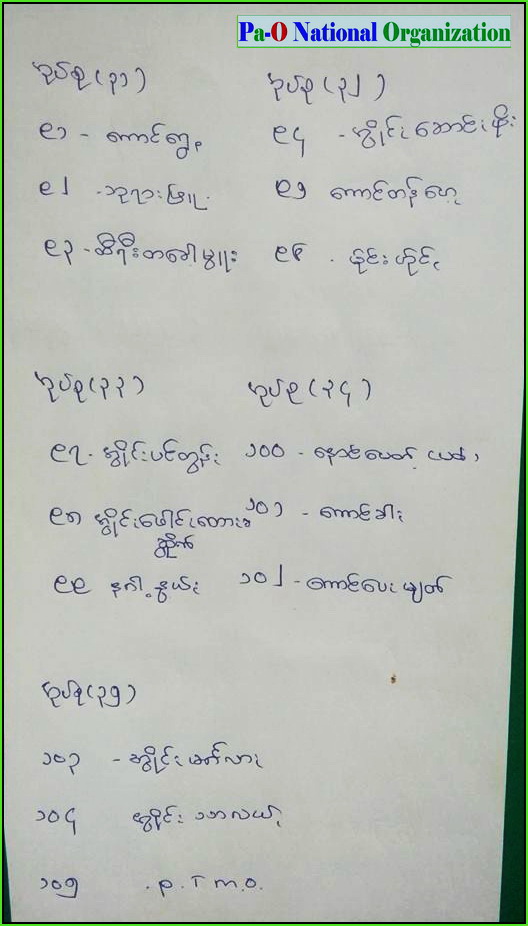 Pa-O National Organization
အုပ်စု (၃၁)
၉၁ - တောင်ကျွေႉ
၉၂ - ဘုရားဖြူႏ
၉၃ - ဆီရီးတခေါမွူး
အုပ်စု (၃၂)
၉၄ - အွိုင်ႏဆောင်ႏဖိုး
၉၅ တောင်တန်ဟေႉ
၉၆ -
အုပ်စု (၃၃)
၉၇ - အွိုင်ႏပင်တွန်ႏ
၉၈ အွိုင်ႏဖေါင်ႏ
၉၉ နဂါႉနွယ်ႏ
အုပ်စု (၃၄)
၁၀၀ -
၁၀၁ - တောင်ခါႏ
၁၀၂ - တောင်လေႏမျတ်
အုပ်စု (၃၅)
၁၀၃ - အွိုင်ႏမတ်လာႏ
၁၀၄ အွိုင်ႏသာလယ်ႉ
၁၀၅ - P.T.M.O.